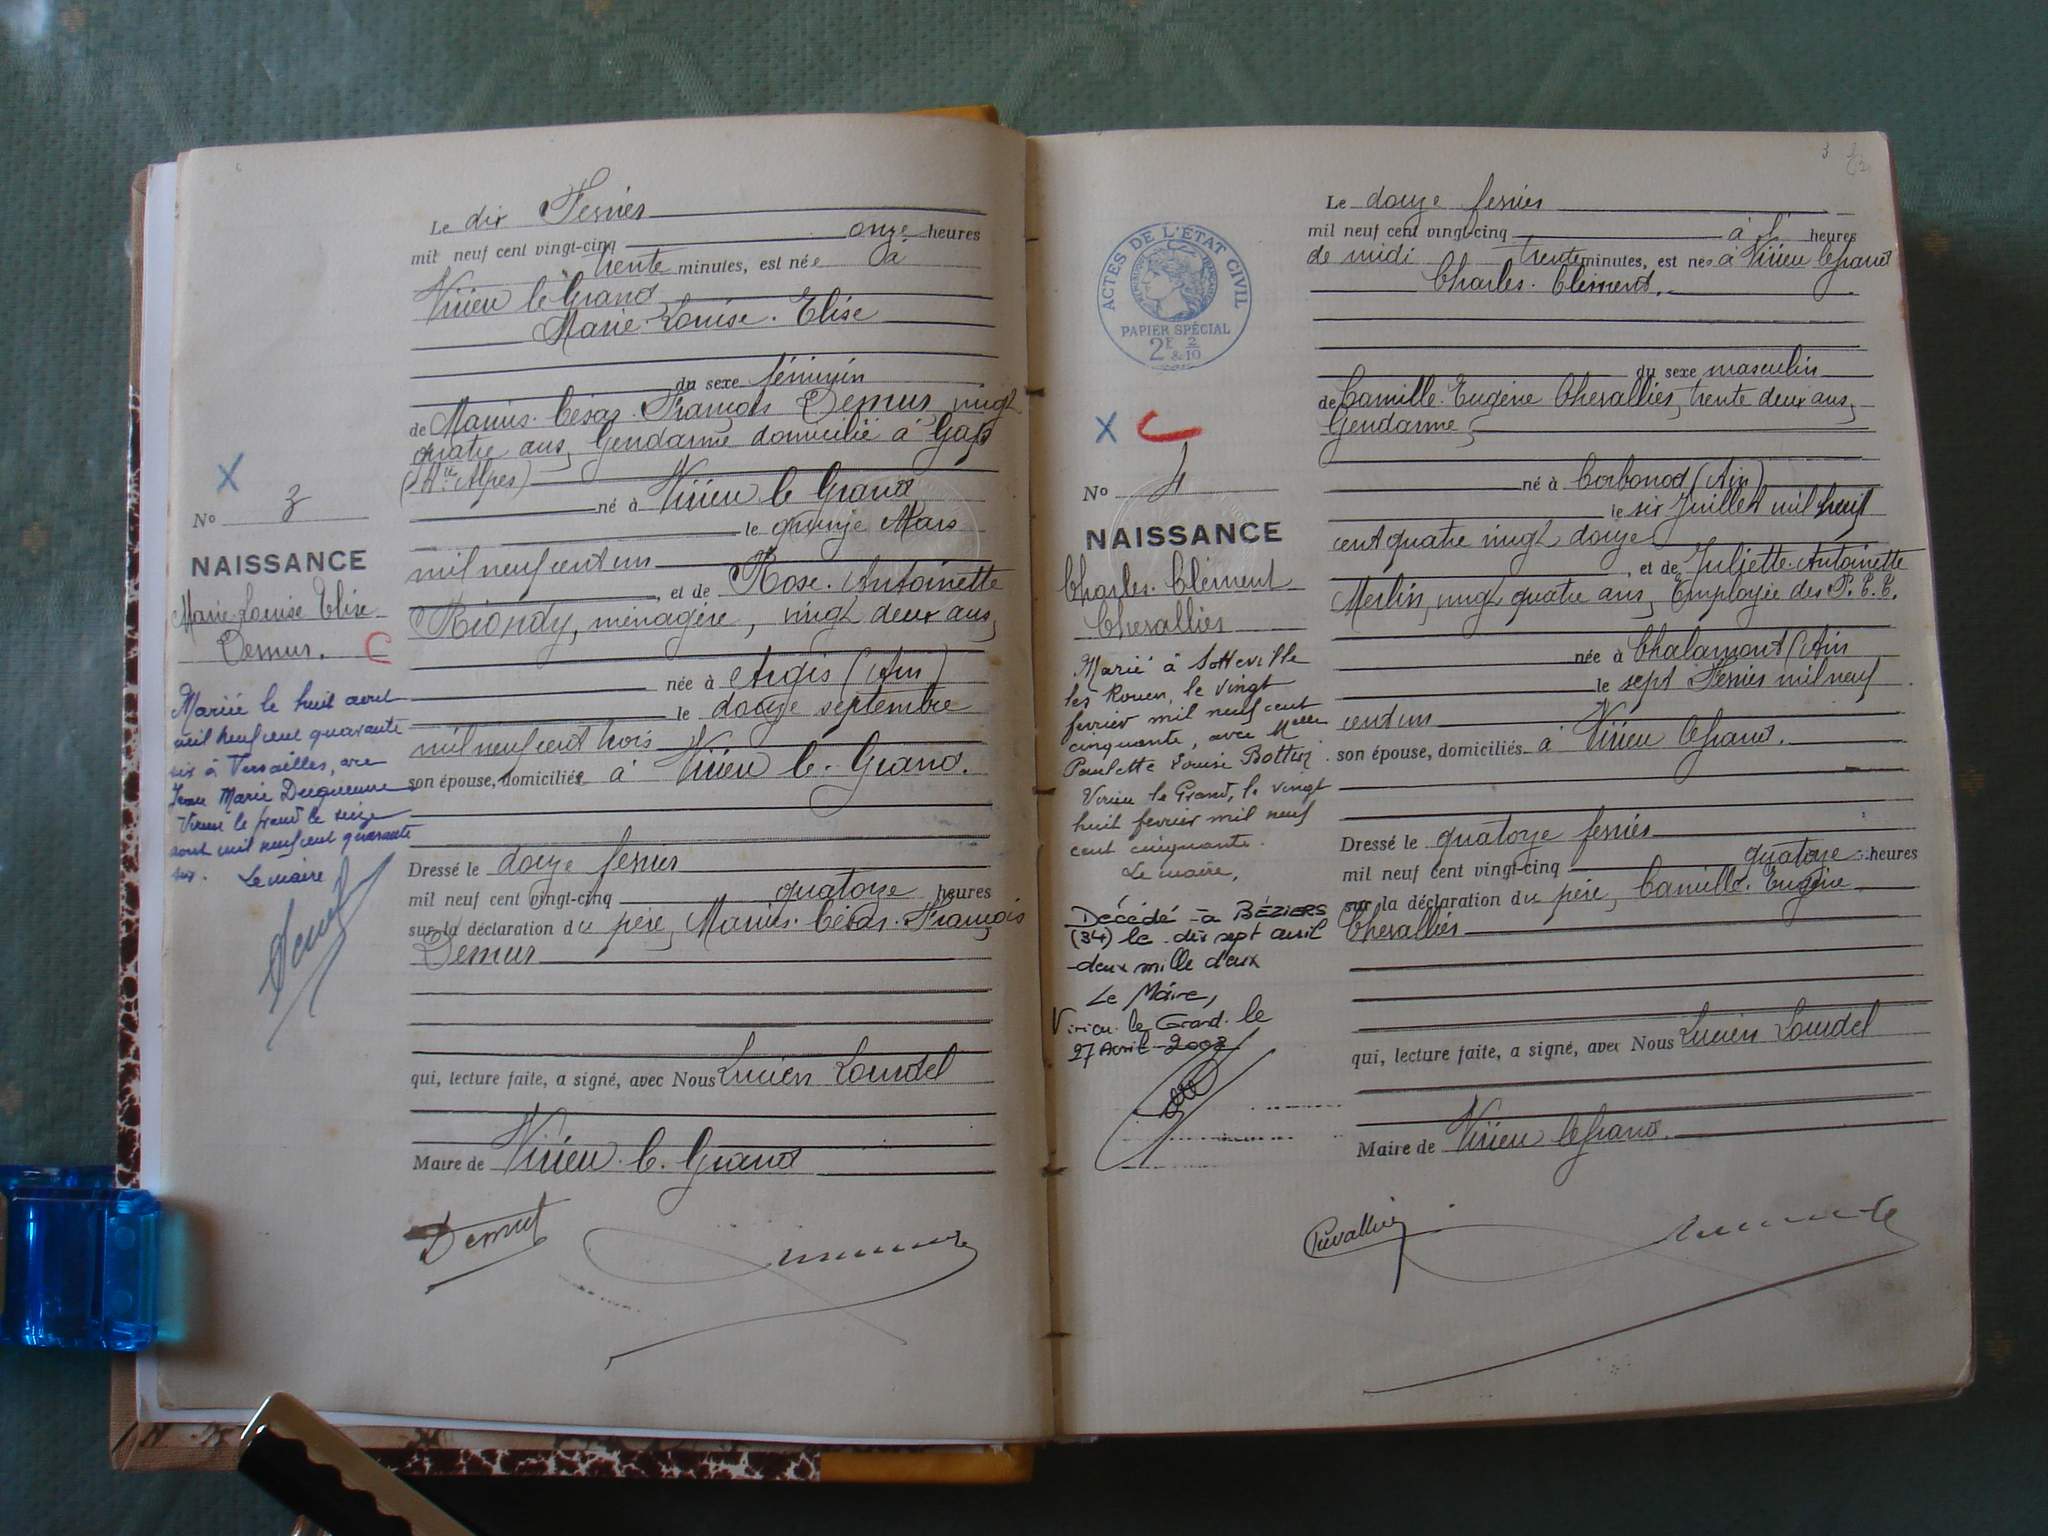 Le dix Février
mil neuf cent vingt-cinq onze heures
trente minutes, est née à
Virieu le Grand
Marie-Louise-Elise
du sexe féminin
de Marius-César-François Demur, vingt
quatre ans, Gendarme domicilié à Gap
(Htes Alpes)
né à Virieu le Grand
le quinze Mars
mil neuf cent un
, et de Rose-Antoinette
Riondy, ménagère, vingt deux ans,
née à Argis (Ain)
le douze septembre
mil neuf cent trois
son épouse, domiciliée à Virieu-le-Grand.
Dressé le douze février
mil neuf cent vingt-cinq quatorze heures
sur la déclaration du père, Marius-César-François
Demur
qui, lecture faite, a signé, avec Nous Lucien Lourdel
Maire de Virieu-le-Grand
Demur
No 3
NAISSANCE
Marie-Louise Elise
Demur.
Mariée le huit avril
mil neuf cent quarante
six à Versailles, avec
Jean Marie
Virieu le grand le seize
août mil neuf cent quarante
six. Le maire
3
Le douze février
mil neuf cent vingt-cinq à 1 heures
de midi trente minutes, est né à Virieu le Grand
Charles-Clément.
du sexe masculin
de Camille-Eugène Chevallier, trente deux ans,
Gendarme,
né à Corbonod (Ain)
le six Juillet mil huit
cent quatre vingt douze
, et de Juliette-Antoinette
Merlin, vingt quatre ans, Employée des P.T.T.
née à Chalamont (Ain
le sept Février mil neuf
cent un
son épouse, domiciliés à Virieu le Grand.
Dressé le quatorze février
mil neuf cent vingt-cinq quatorze heures
sur la déclaration du père, Camille-Eugène
Chevallier
qui, lecture faite, a signé, avec Nous Lucien Lourdel
Maire de Virieu le Grand.
Chevallier
ACTES DE L'ÉTAT CIVIL
PAPIER SPÉCIAL
2F 2/10
No 4
NAISSANCE
Charles-Clément
Chevallier
Marié à Sotteville
les Rouen, le vingt
février mil neuf cent
cinquante, avec Melle
Paulette Louise
Virieu le Grand, le vingt
huit février mil neuf
cent cinquante.
Le maire,
Décédé à BÉZIERS
(34) le dix sept avril
deux mille deux
Le Maire,
Virieu le Grand le
27 Avril